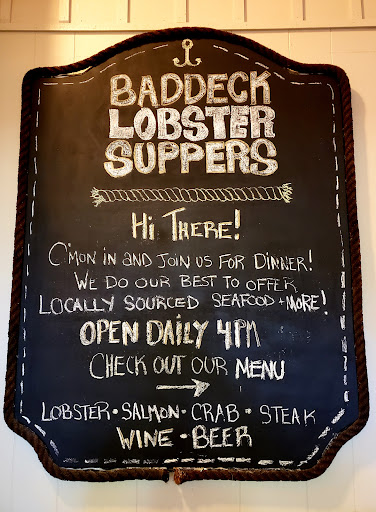 BADDECK
LOBSTER
SUPPERS
Hi THERE!
C'MON IN AND JOIN US FOR DINNER!
WE DO OUR BEST TO OFFER
LOCALLY SOURCED SEAFOOD + MORE!
OPEN DAILY 4PM
CHECK OUT OUR MENU
LOBSTER • SALMON • CRAB • STEAK
WINE • BEER